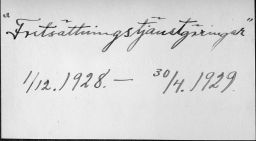 "Fritsättningstjänstgöringar"
1/12.1928.— 30/4.1929.